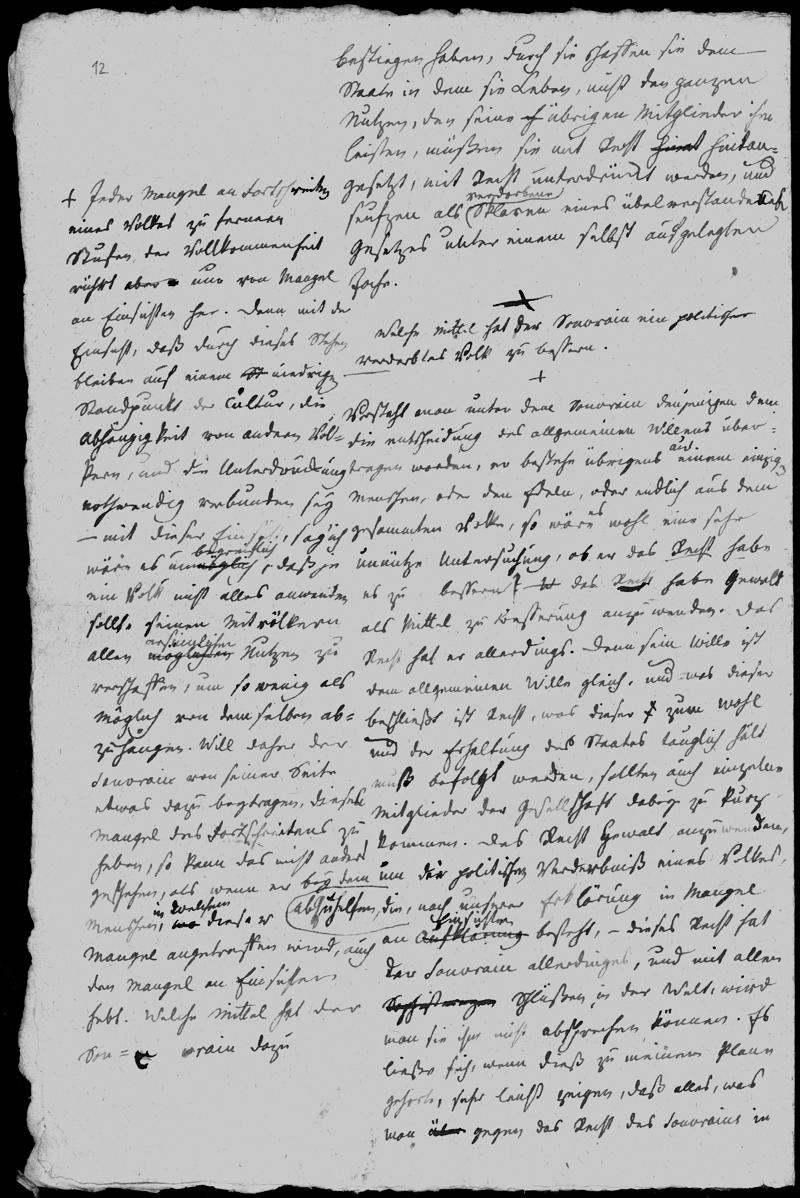 12
bestiegen haben, durch sie schaffen sie dem
Staate in dem sie Leben, nicht den ganzen
Nutzen, den seine übrigen Mitglieder ihm
leisten, müßen sie mit Recht hindan=
gesetzt, mit Recht unterdrückt werden, und
verdorbene
seufzen als Sklaven eines übel verstandenen
Gesetzes unter einem selbst aufgelegten
Joche.
Welche Mittel hat der Souvrain ein politisch
verderbtes Volk zu bessern.
+
Versteht man unter dem Souvrain denjenigen dem
die entscheidung des allgemeinen Willens über=
tragen worden, er bestehe übrigens aus einem einzigen
Menschen, oder den Edeln, oder endlich aus dem
gesammten Volke, so wäre es wohl eine sehr
unnütze Untersuchung, ob er das Recht habe
es zu bessern? das Recht habe Gewalt
als Mittel zu Besserung anzuwenden. Das
Recht hat er allerdings. Denn sein Wille ist
dem allgemeinen Wille gleich, und was dieser
beschließt ist Recht, was dieser zum wohl
und der Erhaltung des Staates tauglich hält
muß befolgt werden, sollten auch einzelne
Mitglieder der Gesellschaft dabey zu kurz
kommen. Das Recht Gewalt anzuwenden,
um der politischen Verderbniß eines Volkes,
abzuhelfen, die, nach unserer Erklärung in Mangel
Einsichten
an Aufklärung besteht, – dieses Recht hat
der Souvrain allerdinges, und mit allen
Schlüßen in der Welt, wird
man sie ihm nicht absprechen können. Es
ließe sich, wenn dieß zu meinem Plane
gehörte, sehr leicht zeigen, daß alles, was
man gegen das Recht des Souvrains in
+ Jeder Mangel an Fortschreiten
eines Volkes zu fernern
Stufen der Vollkommenheit
rührt aber nur von Mangel
an Einsichten her. Denn mit der
Einsicht, daß durch dieses Stehen
bleiben auf einem niedrigen
Standpunkt der Cultur, die
Abhängigkeit von andern Völ=
kern, und die Unterdrückung
nothwendig verbunden sey
– mit dieser Einsicht, sag ich
begreiflich
wäre es unmöglich, daß je
ein Volk nicht alles anwenden
sollte seinen Mitvölkern
ersinnlichen
allen möglichen Nutzen zu
verschaffen, um so wenig als
möglich von demselben ab=
zuhängen. Will daher der
Souvrain von seiner Seite
etwas dazu beytragen, diesen
Mangel des Fortschreitens zu
heben, so kann das nicht anders
geschehen, als wenn er bey dem
in welchem
Menschen, wo dieser
Mangel angetroffen wird, auch
den Mangel an Einsichten
hebt. Welche Mittel hat der
Sou= vrain dazu